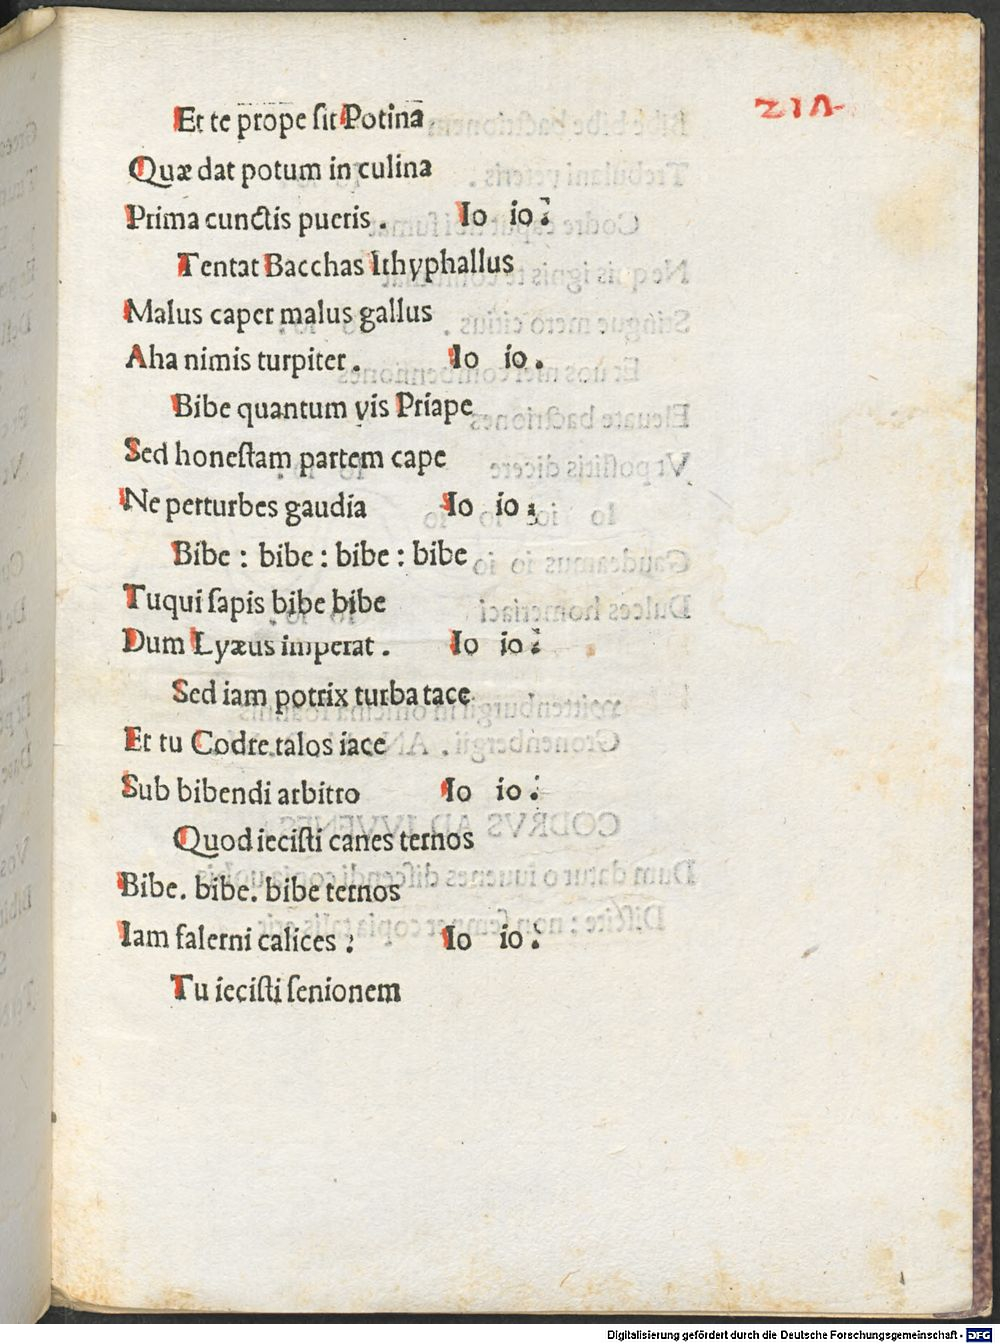 Et te prope ſit Potina
Quæ dat potum in culina
Prima cunctis pueris . Io io :
Tentat Bacchas Ithyphallus
Malus caper malus gallus
Aha nimis turpiter . Io io .
Bibe quantum vis Priape
Sed honeſtam partem cape
Ne perturbes gaudia Io io :
Bibe : bibe : bibe : bibe
Tuqui ſapis bibe bibe
Dum Lyæus imperat . Io io :
Sed iam potrix turba tace
Et tu Codre talos iace
Sub bibendi arbitro Io io :
Quod ieciſti canes ternos
Bibe. bibe. bibe ternos
Iam falerni calices : Io io :
Tu ieciſti ſenionem
Digitalisierung gefördert durch die Deutsche Forschungsgemeinschaft - DFG